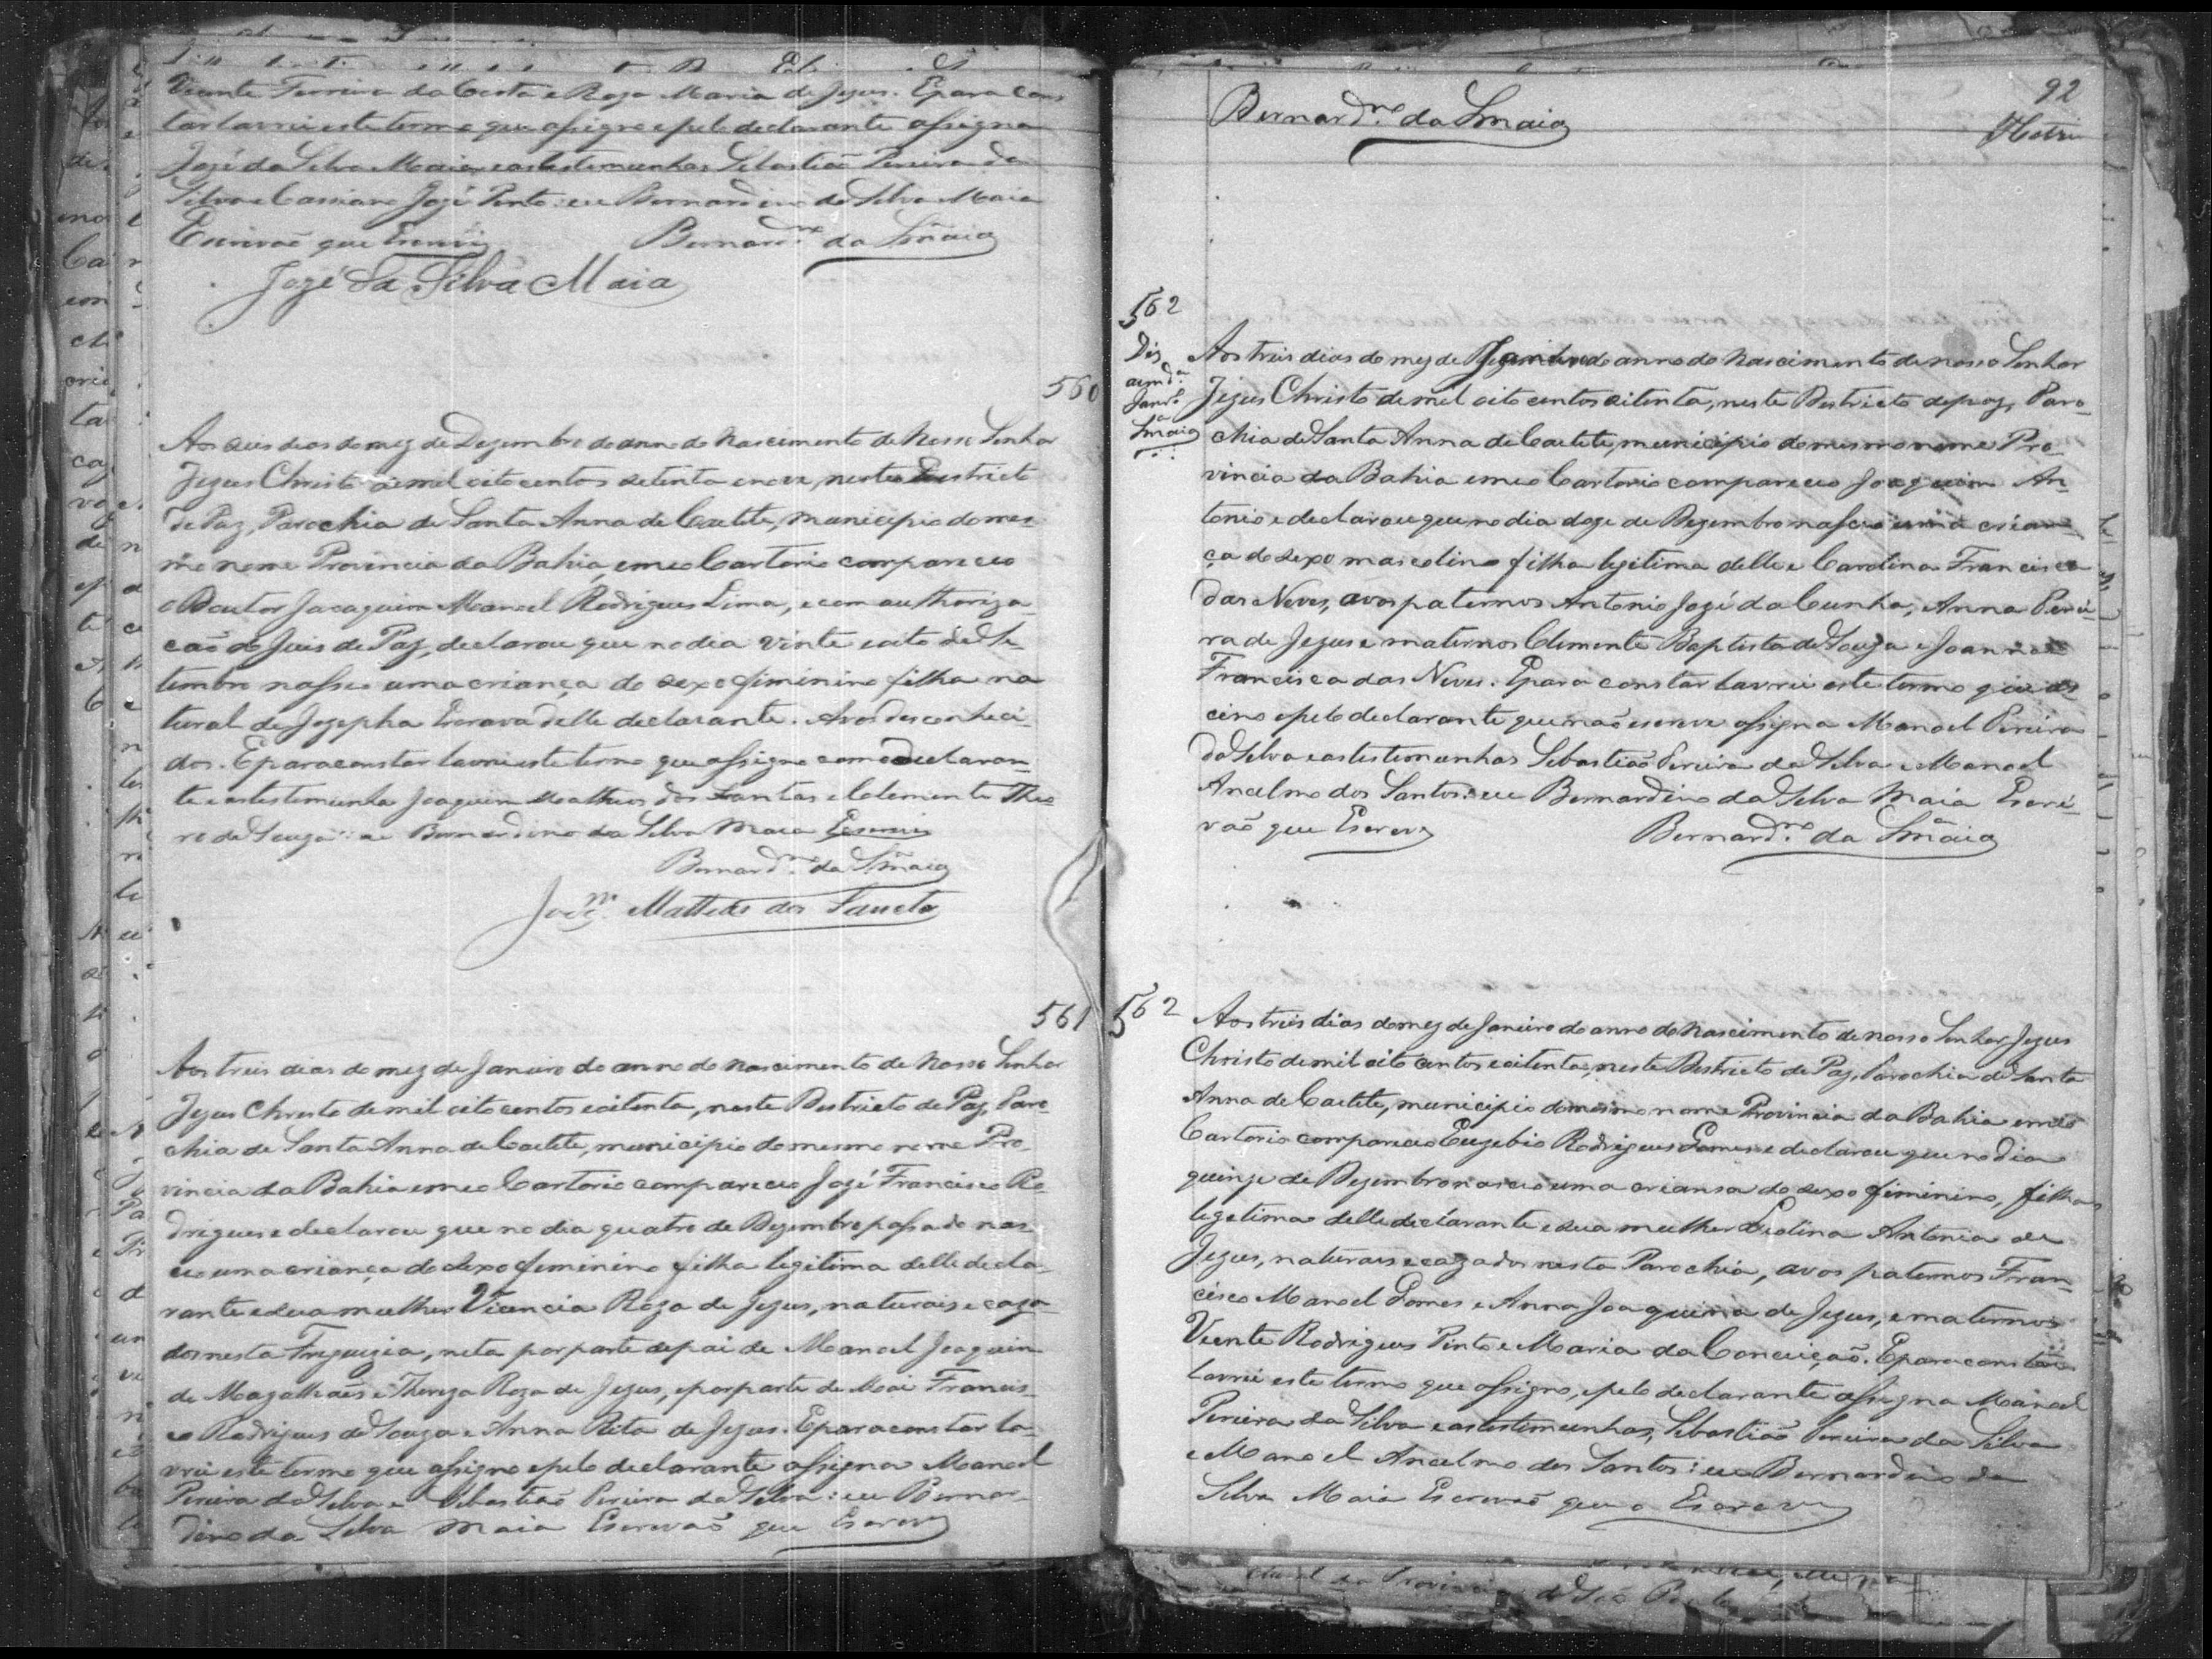 Vicente Ferreira da Costa e Roza Maria de Jezus. E para cons
tar lavrei este termo que assigno e pelo declarante assigna
José da Silva Maia e as testemunhas Sebastião Pereira da
Silva e Cassiano José Pinto: eu Bernardino da Silva Maia
Escrivão que Escrevi Bernard.no da S.a Maia
José da Silva Maia
560
Aos seis dias do mez de Dezembro do anno do Nascimento de Nosso Senhor
Jezus Christo de mil oito centos setenta e nove, neste Destricto
de Paz, Parochia de Santa Anna de Caetite, Municipio do mes
mo nome Provincia da Bahia, em meo Cartorio compareceo
o Doutor Joaquim Manoel Rodrigues Lima, e com authoriza-
cão do Juis de Paz, declarou que no dia vinte e oito de Se-
tembro nasseo uma criança do sexo fiminino filha na
tural de Jozepha Escrava delle declarante. Avos desconheci-
dos. E para constar lavrei este termo que assigno com o declaran-
te e as testemunha Joaquim Matheos dos Santos e Clemente
ro de Souza: eu Bernardino da Silva Maia Escrevi
Bernard.no da S.a Maia
Joaq.m Mattheos dos Sanctos
561
Aos treis dias do mez de Janeiro do anno do Nascimento de Nosso Senhor
Jezus Christo de mil oito centos e oitenta, neste Destricto de Paz, Paro-
chia de Santa Anna de Caetite, municipio do mesmo nome Pro-
vincia da Bahia em meo Cartorio compareceo José Francisco Ro-
drigues e declarou que no dia quatro de Dezembro passado nas-
ceo uma criança do sexo feminino filha legitima delle decla-
rante e sua mulher Vicencia Roza de Jezus, naturais e caza-
dos nesta Freguezia, neta por parte de pai de Manoel Joaquim
de Magalhaẽs e Thereza Roza de Jezus, e por parte de Mai Francis-
co Rodrigues de Souza e Anna Rita de Jezus. E para constar la-
vrei este termo que assigno e pelo declarante assigna Manoel
Pereira da Silva e Sebastião Pereira da Silva: eu Bernar-
dino da Silva Maia Escrevaõ que Escrevy
92
Bernard.no da S.a Maia
562
Aos treis dias do mez de Janeiro do anno do Nascimento de nosso Senhor
Jezus Christo de mil oito centos oitenta, neste Destricto de paz, Paro-
chia de Santa Anna de Caetite, municipio do mesmo nome Pro-
vincia da Bahia em meo Cartorio compareceo Joaquim An-
tonio e declarou que no dia doze de Dezembro nasceo uma crian-
ça do sexo mascolino filha legitima delle e Carolina Francisca
das Neves, avos paternos Antonio José da Cunha, Anna Perei-
ra de Jezus e maternos Clemente Baptista de Souza e Joanna
Francisca das Neves. E para constar lavrei este termo que as
cino e pelo declarante que não escreve assigna Manoel Pereira
da Silva e as testemunhas Sebastião Pereira da Silva e Manoel
Ancelmo dos Santos: eu Bernardino da Silva Maia Escri-
vaõ que Escrevy Bernard.no da S.a Maia
562
Aos treis dias do mez de Janeiro do anno do Nascimento de nosso Senhor Jezus
Christo de mil oito centos e oitenta, neste Destricto de Paz, Parochia de Santa
Anna de Caetite, municipio do mesmo nome Provincia da Bahia em meo
Cartorio compareceo Euzebio Rodrigues Gomes e declarou que no dia
quinze de Dezembro nasceo uma criansa do sexo fiminino, filha
legetima delle declarante e sua mulher Antonia de
Jezus, naturais e cazados nesta Parochia, avos paternos Fran-
cisco Manoel Gomes e Anna Joaquina de Jezus, e maternos
Vicente Rodrigues Pinto e Maria da Conceição. E para constar
lavrei este termo que assigno, e pelo declarante assigna Manoel
Pereira da Silva e as testemunhas, Sebastião Pereira da Silva
e Manoel Ancelmo dos Santos: eu Bernardino da
Silva Maia Escrevaõ que o Escrevy